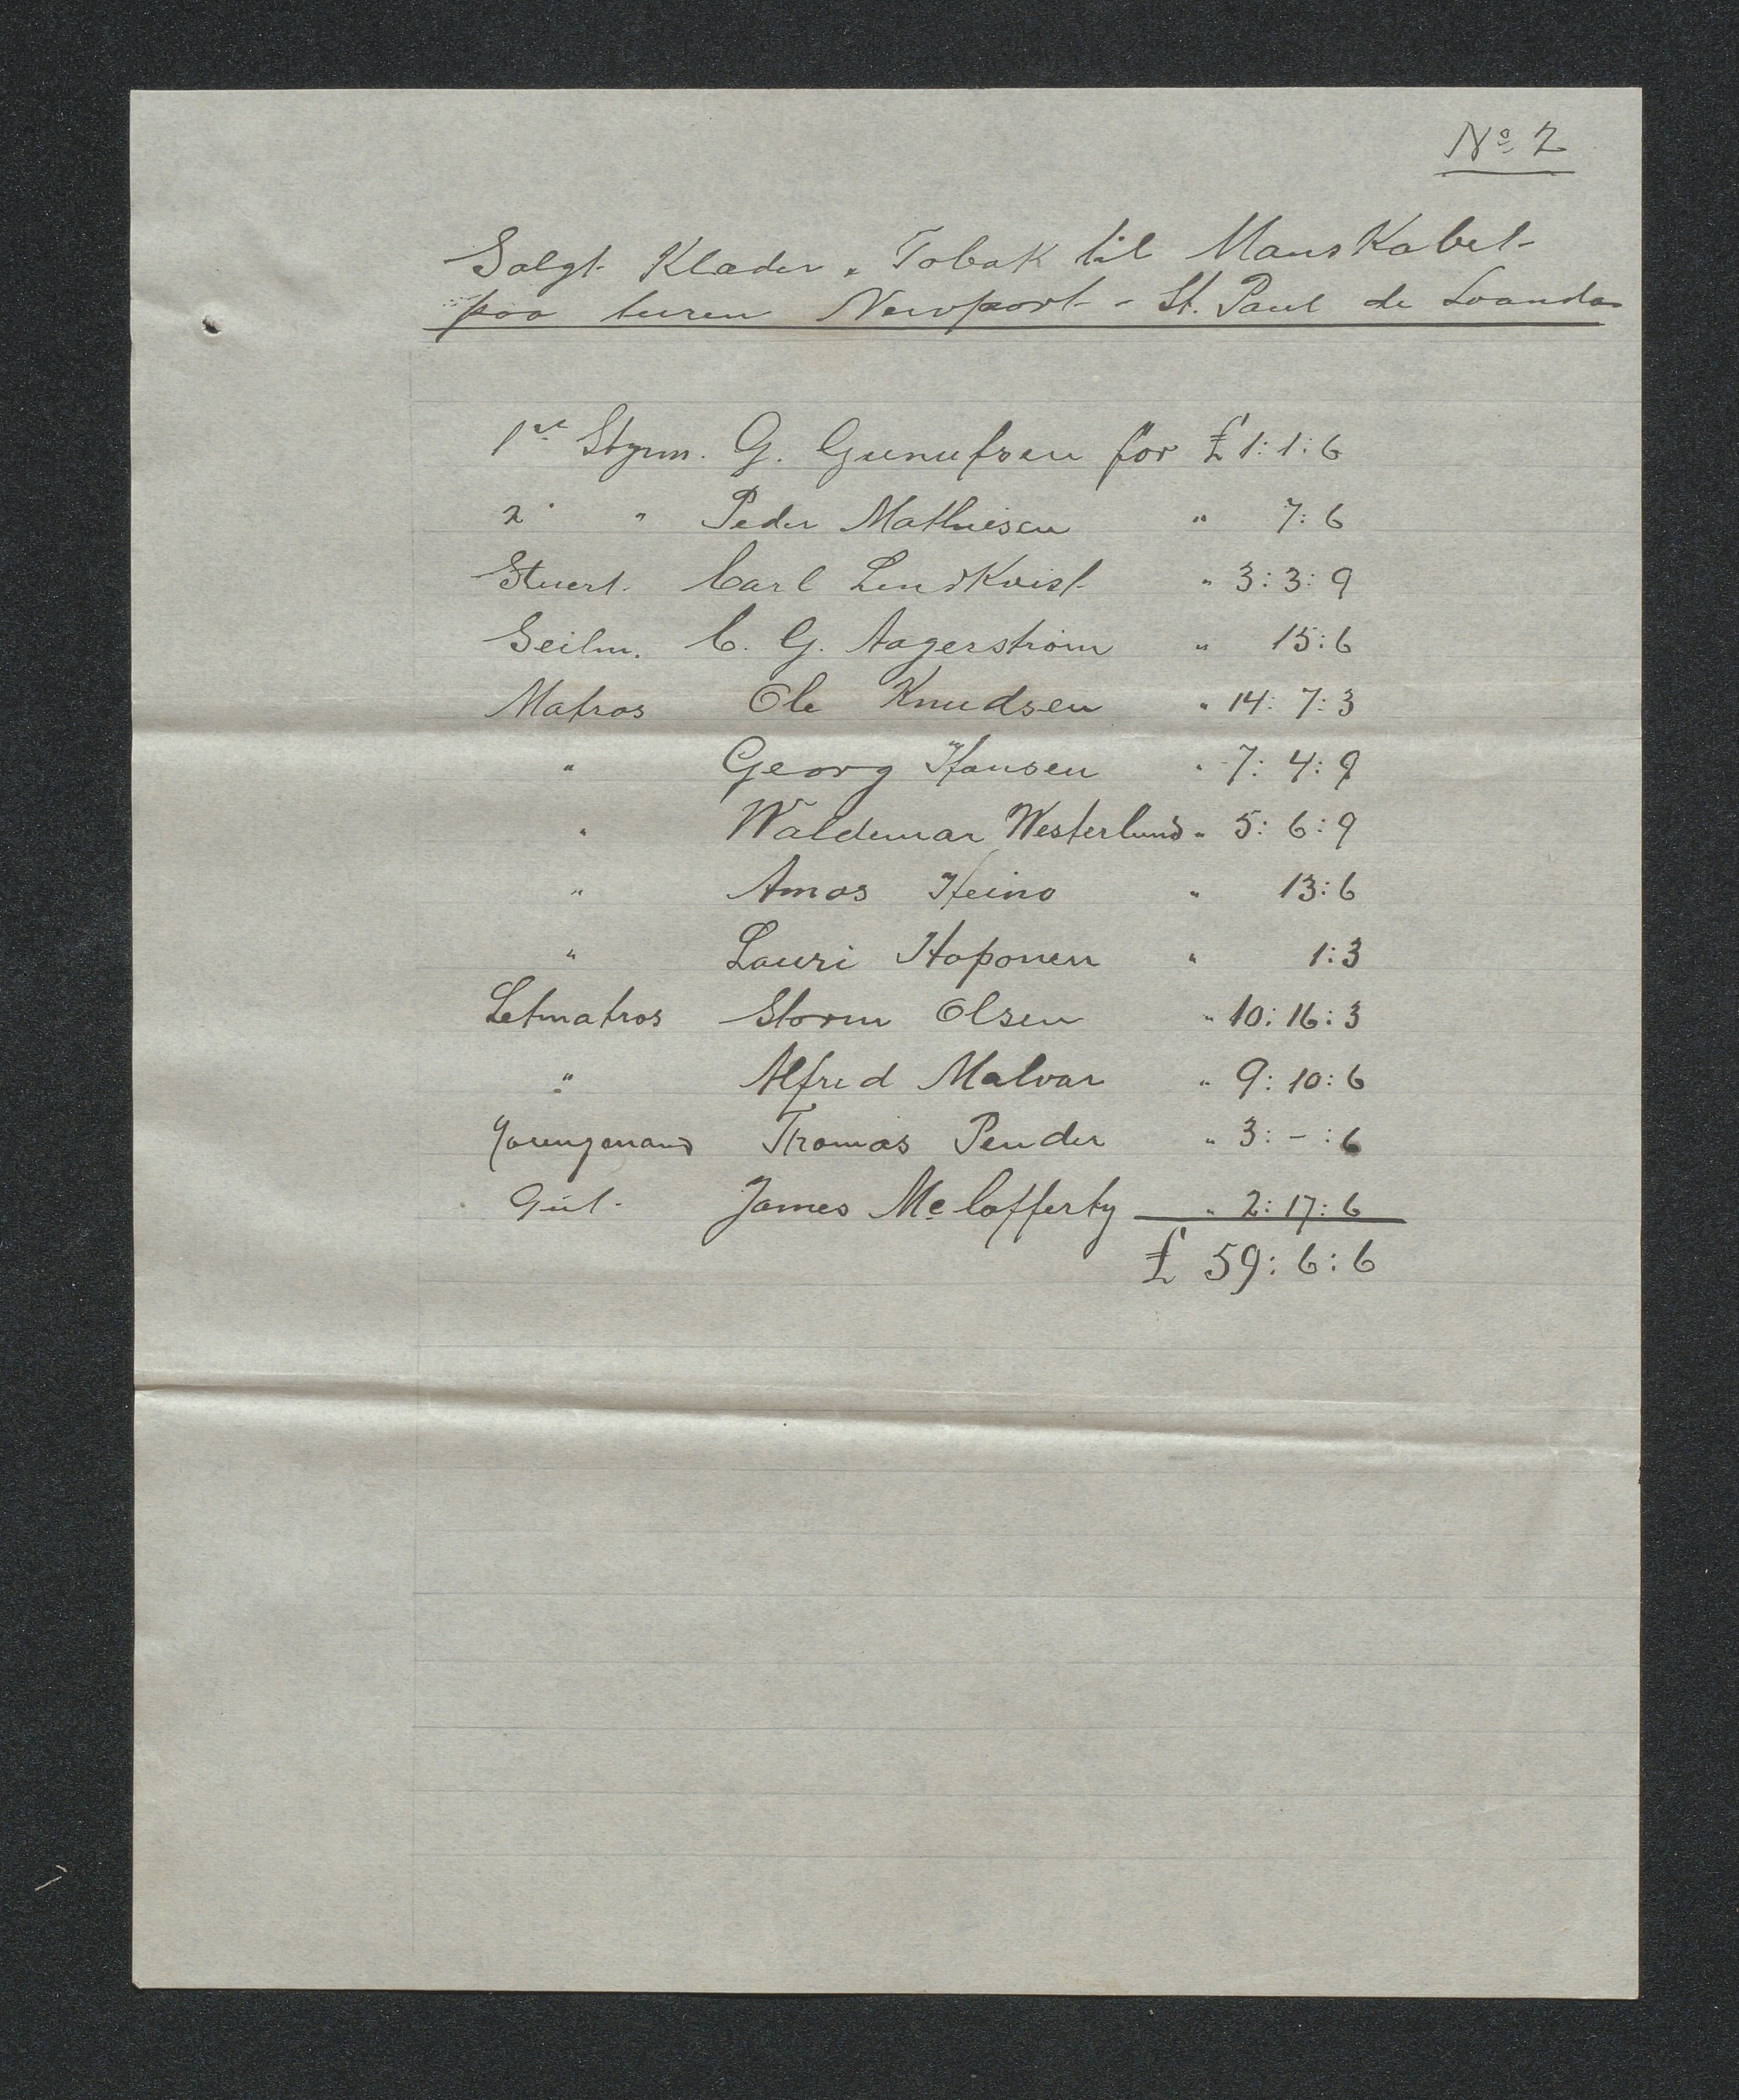 No 2
Solgt Klæder & Tobak til Manskabet
paa turen Newport - St. Paul de Loanda
1ste Styrm. G. Gunufsen for £ 1:1:6
2. " Peder Mathiesen " 7:6
Stuert. Carl Lindkvist " 3:3:9
Seilm. C. G. Aagerstrøm " 15:6
Matros Ole Knudsen " 14:7:3
" Georg Hansen " 7:4:9
" Waldemar Westerlund " 5:6:9
" Amos Heino " 13:6
" Lauri Haponen " 1:3
Letmatros Storm Olsen " 10:16:3
" Alfred Malvar " 9:10:6
Joungmand Thomas Pender " 3:-:6
Gut. James Mc Cofferty " 2:17:6
£ 59:6:6